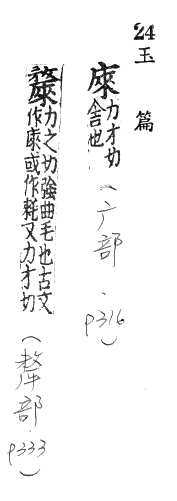 24
玉篇
庲力才切
舍也
(广部.p316)
斄力之切強曲毛也古文
作庲或作耗又力才切
(犛部.p333)